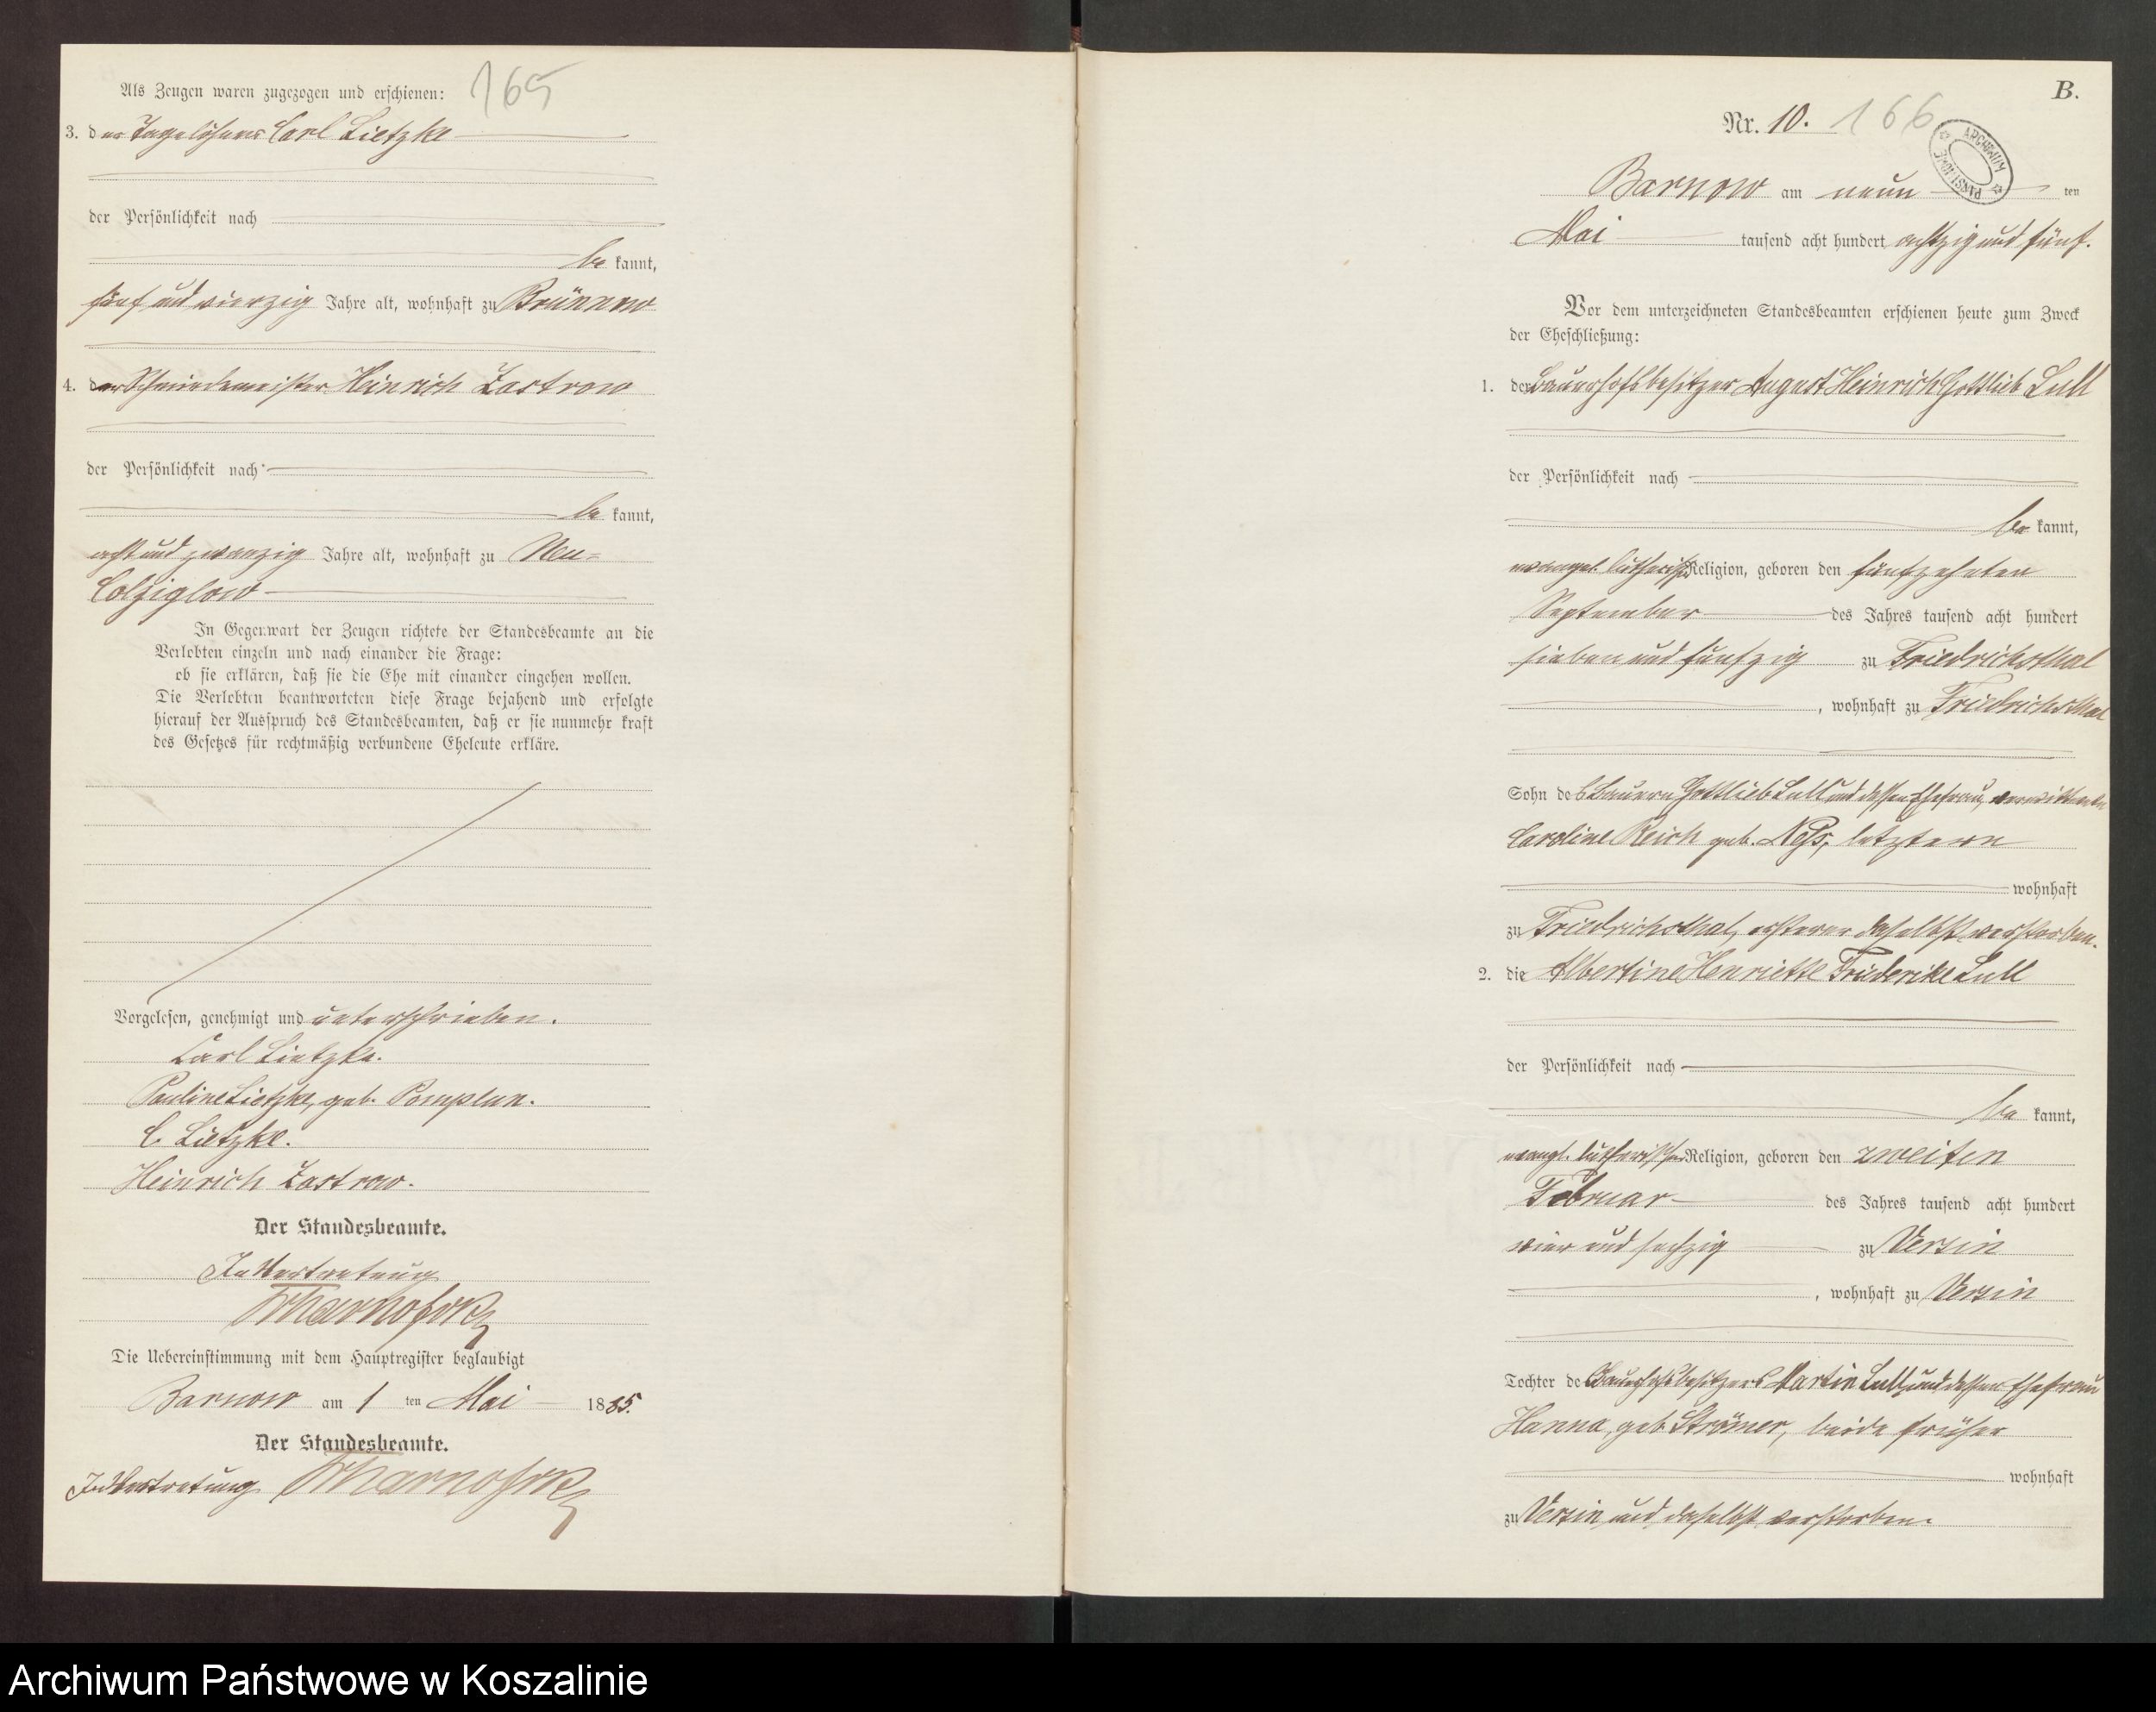 165
Als Zeugen waren zugezogen und erschienen:
3. der Tagelöhner Carl Lietzke
der Persönlichkeit nach
be kannt,
fünf und vierzig Jahre alt, wohnhaft zu Brünnow
4. der Schmiedemeister Heinrich Zastrow
der Persönlichkeit nach
be kannt,
acht und zwanzig Jahre alt, wohnhaft zu Neu=
Colziglow
In Gegenwart der Zeugen richtete der Standesbeamte an die
Verlobten einzeln und nach einander die Frage:
ob sie erklären, daß sie die Ehe mit einander eingehen wollen.
Die Verlobten beantworteten diese Frage bejahend und erfolgte
hierauf der Ausspruch des Standesbeamten, daß er sie nunmehr kraft
des Gesetzes für rechtmäßig verbundene Eheleute erkläre.
Vorgelesen, genehmigt und unterschrieben.
Carl Lietzke.
Pauline Lietzke, geb. Pomplun.
C. Lietzke.
Heinrich Zastrow.
Der Standesbeamte.
In Vertretung
Die Uebereinstimmung mit dem Hauptregister beglaubigt
Barnow am 1 ten Mai 1885.
Der Standesbeamte.
In Vertretung
B.
Nr. 10. 166
ARCHIWUM PAŃSTWOWE
Barnow am neun ten
Mai tausend acht hundert achtzig und fünf.
Vor dem unterzeichneten Standesbeamten erschienen heute zum Zweck
der Eheschließung:
1. der Bauerhofsbesitzer August Heinrich Gottlieb Lull
der Persönlichkeit nach
be kannt,
evangel. lutherischer Religion, geboren den fünfzehnten
September des Jahres tausend acht hundert
sieben und fünfzig zu Friedrichsthal
, wohnhaft zu Friedrichsthal
Sohn des Bauern Gottlieb Lull und dessen Ehefrau, verwittwete
Caroline Reich geb. letztere
wohnhaft
zu Friedrichsthal, ersterer daselbst verstorben.
2. die Albertine Henriette Friederike Lull
der Persönlichkeit nach
be kannt,
evangl. lutherischer Religion, geboren den zweiten
Februar des Jahres tausend acht hundert
vier und sechzig zu Versin
, wohnhaft zu Versin
Tochter des Bauerhofsbesitzers Martin Lull und dessen Ehefrau
Hanna, geb. Strömer, beide früher
wohnhaft
zu Versin und daselbst verstorben.
Archiwum Państwowe w Koszalinie